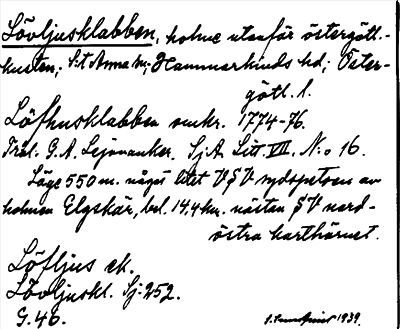 Lövljusklabben, holme utanför östergötl.-
kusten; S:t Anna sn; Hammarkinds hd; Öster-
götl. l.
Löfhusklabben omkr. 1774-76.
G. A. Lejonanker. Sj.A. Lit. VII, N:o 16.
Läge 550 m. något litet V § V sydspetsen av
holmen Elgskär, bel. 14,4 km. nästan § V nord-
östra karthörnet.
Löfljus ek.
Lövljuskl. Sj: 252.
G. 46.
1939.